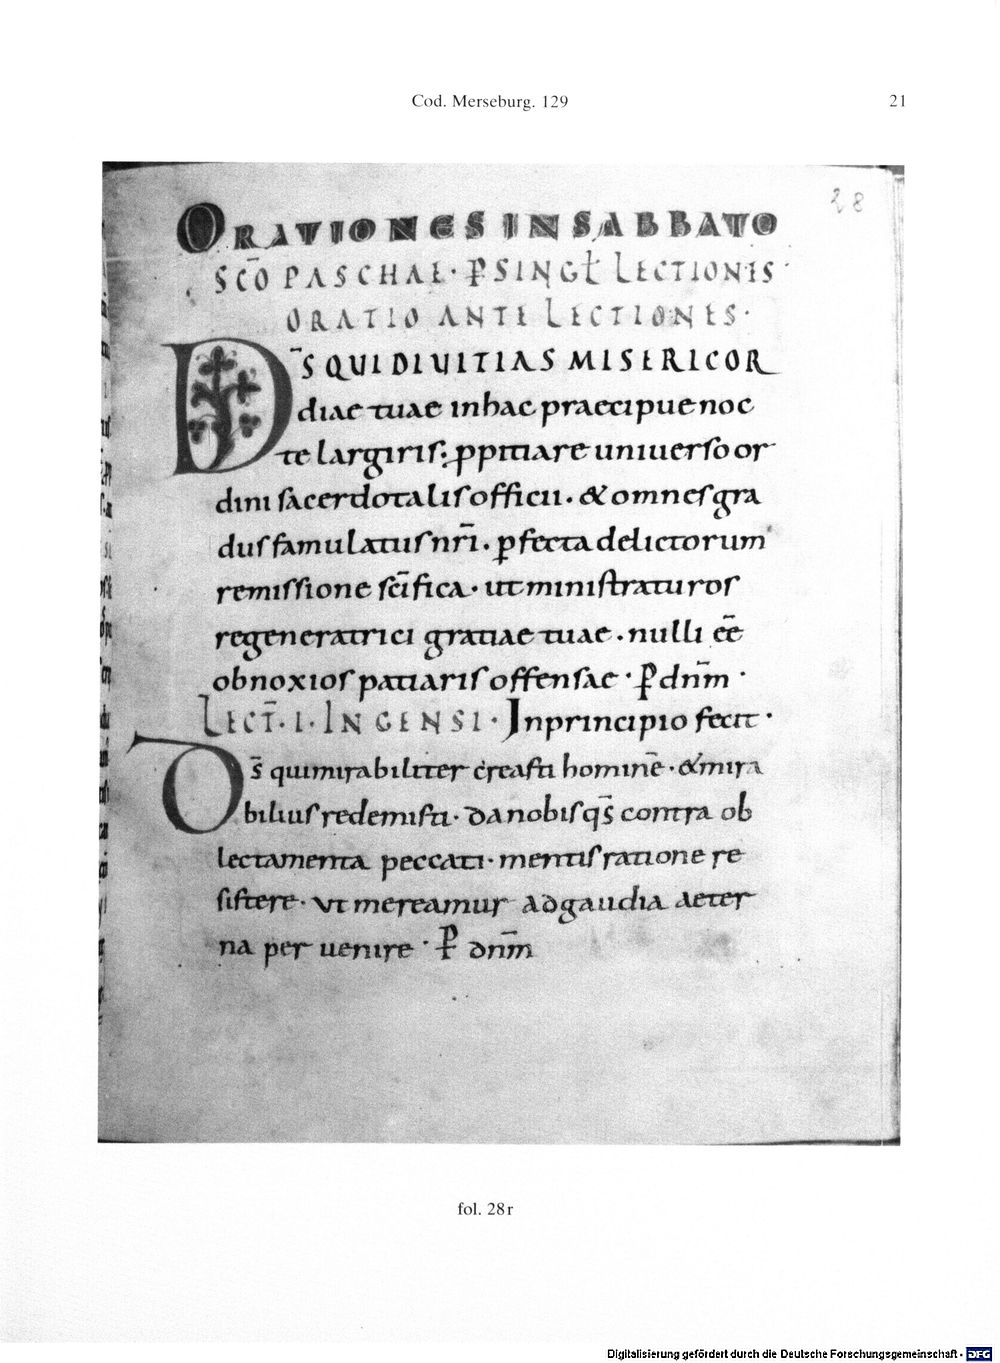 Cod. Merseburg. 129
21
28
ORATIONES IN SABBATO
SC̄O PASCHAE · ꝑ SINGŁ LECTIONES ·
ORATIO ANTE LECTIONES ·
D̄S QUI DIVITIAS MISERICOR
diae tuae in hac praecipue noc
te largiris; ppitiare uniuerso or
dini sacerdotalis officii · & omnes gra
dus famulatus nr̄i · ꝑfecta delictorum
remissione sc̄ifica · ut ministraturos
regeneratrici gratiae tuae · nulli ēē
obnoxios patiaris offensae · P̱ dnm̄ ·
LECT̄ · I · IN GENESI · In principio fecit ·
D̄s qui mirabiliter creasti hominē · & mira
bilius redemisti · da nobis qs̄ contra ob
lectamenta peccati · mentis ratione re
sistere · ut mereamur ad gaudia aeter
na peruenire · P̱ dnm̄
fol. 28r
Digitalisierung gefördert durch die Deutsche Forschungsgemeinschaft - DFG